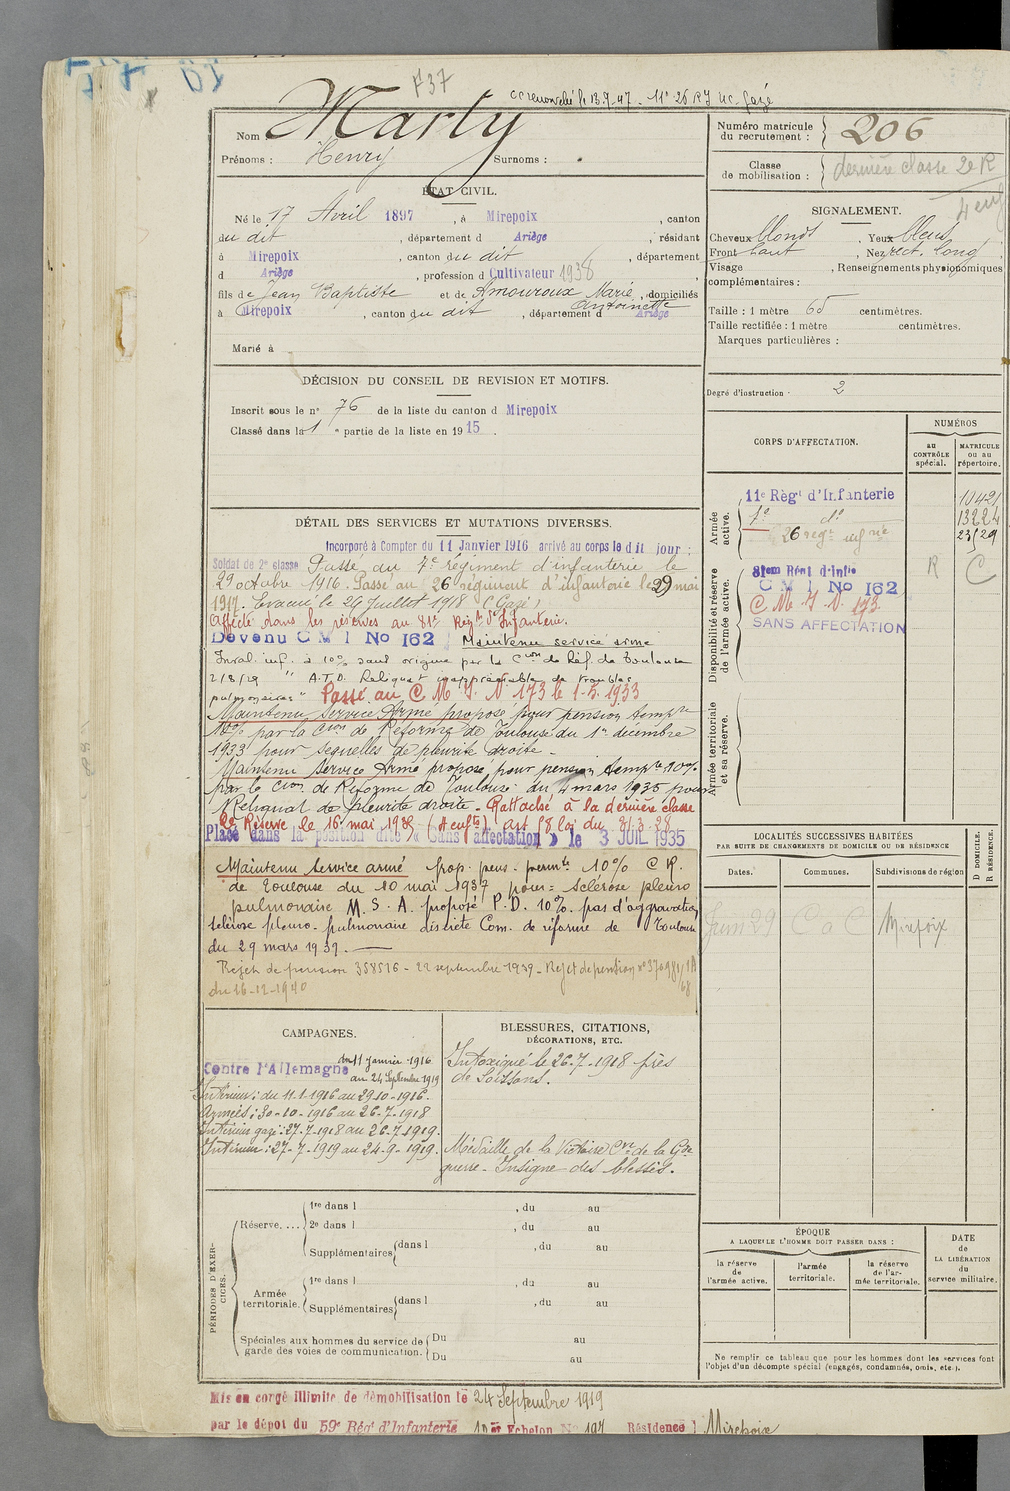 F37
11e 26 RI
Marty
Nom
Prénoms : Henry Surnoms :
ÉTAT CIVIL.
Né le 17 Avril 1897, à Mirepoix, canton
du dit, département d Ariège, résidant
à Mirepoix, canton du dit, département
d Ariège, profession d Cultivateur 1938
fils de Jean Baptiste et de Amouroux Marie, domiciliés
Antoinette
à Mirepoix, canton du dit, département d Ariège
Marié à
DÉCISION DU CONSEIL DE REVISION ET MOTIFS.
Inscrit sous le n° 76 de la liste du canton d Mirepoix
Classé dans la 1e partie de la liste en 1915.
DÉTAIL DES SERVICES ET MUTATIONS DIVERSES.
Incorporé à Compter du 11 Janvier 1916 arrivé au corps le dit jour ;
Soldat de 2e classe Passé au 7e régiment d'infanterie le
29 octobre 1916. Passé au 26 régiment d'infanterie le 29 mai
1917. Evacué le 26 Juillet 1918 (Gazé)
Affecté dans les réserves au 81e Régt d'Infanterie.
Devenu C M I No 162 Maintenu service armé
Inval. inf. à 10% sans origine par la Cion de Réf. de Toulouse
2/8/29 " A.T.D. Reliquat inappréciable de troubles
pulmonaires" Passé au C. M. I. N° 173 le 1-5-1933
Maintenu Service Armé proposé pour pension tempre
10% par la Cion de Réforme de Toulouse du 1er décembre
1933 pour sequelles de pleurite droite.
Maintenu Service Armé proposé pour pension tempre 10%
par la Cion de Réforme de Toulouse du 4 mars 1935 pour
Reliquat de pleurite droite. Rattaché à la dernière classe
2e Réserve le 16 mai 1938 (4 enfts) art 58 loi du 31.3.28
Placé dans la position dite « Sans affectation » le 3 JUIL 1935
Maintenu Service armé prop. pens. permte 10% C.R.
de Toulouse du 10 mai 1937 pour : sclérose pleuro
pulmonaire M. S. A. proposé P. D. 10%. pas d'aggravation
sclérose pleuro-pulmonaire discrète Com. de réforme de Toulouse
du 29 mars 1939.
Rejet de pension 358516 - 22 septembre 1939 - Rejet de pension n°
du 16-12-1940
CAMPAGNES.
Contre l'Allemagne du 11 janvier 1916
au 24 Septembre 1919
Intérieur : du 11-1-1916 au 29-10-1916.
Armées : 30-10-1916 au 26-7-1918
Intérieur gazé : 27-7-1918 au 26-7-1919.
Intérieur : 27-7-1919 au 24-9-1919.
BLESSURES, CITATIONS,
DÉCORATIONS, ETC.
Intoxiqué le 26-7-1918 près
de Soissons.
Médaille de la Victoire Cve de la Gde
guerre - Insigne des blessés.
PÉRIODES D'EXERCICES.
Réserve....
1re dans l , du au
2e dans l , du au
Supplémentaires dans l , du au
Armée territoriale.
1re dans l , du au
Supplémentaires dans l , du au
Spéciales aux hommes du service de garde des voies de communication.
Du au
Du au
Mis en congé illimité de démobilisation le 24 Septembre 1919
par le dépôt du 59e Régt d'Infanterie 10e Echelon No 197 Résidence : Mirepoix
Numéro matricule
du recrutement : 206
Classe
de mobilisation : dernière classe 2e R
4 enf
SIGNALEMENT.
Cheveux blonds, Yeux bleus,
Front haut, Nez rect. long,
Visage , Renseignements physionomiques
complémentaires :
Taille : 1 mètre 65 centimètres.
Taille rectifiée : 1 mètre centimètres.
Marques particulières :
Degré d'instruction : 2
CORPS D'AFFECTATION.
NUMÉROS
au
CONTRÔLE
spécial.
MATRICULE
ou au
répertoire.
Armée
active.
11e Régt d'Infanterie 10421
7e do 13224
26 régt infrie
Disponibilité et réserve
de l'armée active.
81em Rént d'Infie R C
C M I No 162
C. M. I. N. 173.
SANS AFFECTATION
Armée territoriale
et sa réserve.
LOCALITÉS SUCCESSIVES HABITÉES
PAR SUITE DE CHANGEMENTS DE DOMICILE OU DE RÉSIDENCE
Dates. Communes. Subdivisions de région
D DOMICILE.
R RÉSIDENCE.
Juin 29 C a C Mirepoix
ÉPOQUE
A LAQUELLE L'HOMME DOIT PASSER DANS :
la réserve
de
l'armée active.
l'armée
territoriale.
la réserve
de l'ar-
mée territoriale.
DATE
de
LA LIBÉRATION
du
service militaire.
Ne remplir ce tableau que pour les hommes dont les services font
l'objet d'un décompte spécial (engagés, condamnés, omis, etc.).